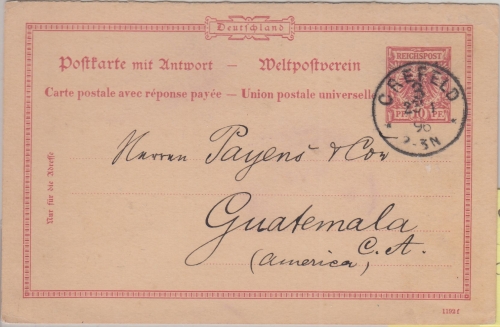 Deutschland
Postkarte mit Antwort — Weltpostverein
Carte postale avec réponse payée — Union postale universelle
REICHSPOST
10
CREFELD
96
2-3N
Herren Payens & Co
Guatemala
C. A.
(America)
Nur für die Adresse